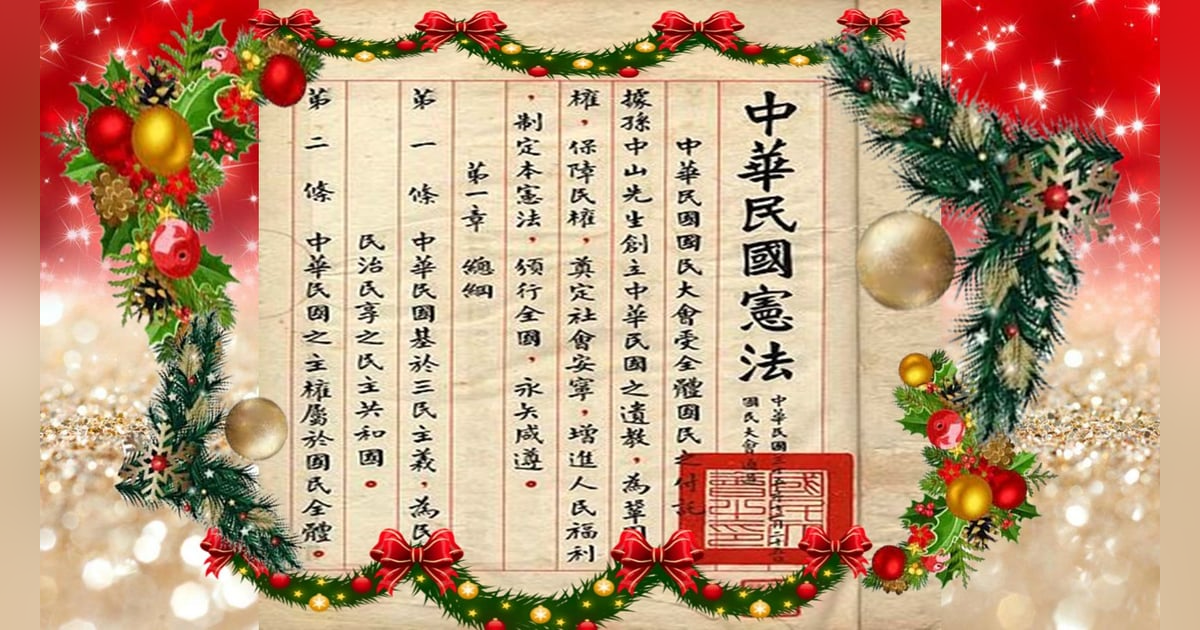 中華民國憲法
中華民國三十五年十二月二十五日
國民大會通過
中華民國國民大會受全體國民之付託
據孫中山先生創立中華民國之遺教，為鞏
權，保障民權，奠定社會安寧，增進人民福利
，制定本憲法，頒行全國，永矢咸遵。
第一章 總綱
第一條 中華民國基於三民主義，為民
民治民享之民主共和國。
第二條 中華民國之主權屬於國民全體。